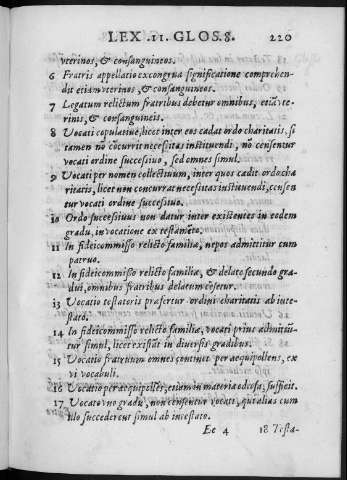 LEX .II. GLOS.8. 220
vterinos, & consanguineos.
6 Fratris appellatio ex congrua significatione comprehen-
dit etiam vterinos, & consanguineos.
7 Legatum relictum fratribus debetur omnibus, etiã vte-
rinis, & consanguineis.
8 Vocati copulatiue, licet inter eos cadat ordo charitatis, si
tamen nõ cõcurrit necessitas instituendi, nõ censentur
vocati ordine successiuo, sed omnes simul.
9 Vocati per nomen collectiuum, inter quos cadit ordo cha
ritatis, licet non concurrat necessitas instituendi, censen
tur vocati ordine successiuo.
10 Ordo successiuus non datur inter existentes in eodem
gradu, in vocatione ex testamẽto.
11 In fideicommisso relicto familiæ, nepos admittitur cum
patruo.
12 In fideicommisso relicto familiæ, & delato secundo gra-
dui, omnibus fratribus delatum cẽsetur.
13 Vocatio testatoris præfertur ordini charitatis ab inte-
stato.
14 In fideicommisso relicto familiæ, vocati prius admittũ-
tur simul, licet existãt in diuersis gradibus.
15 Vocatio fratruum omnes continet per aequipollens, ex
vi vocabuli.
16 Vocatio per æquipollẽs, etiam in materia odiosa, sufficit.
17 Vocato vno gradu, non censentur vocati, qui alias cum
illo succederent simul ab intestato.
Ee 4 18 Testa-